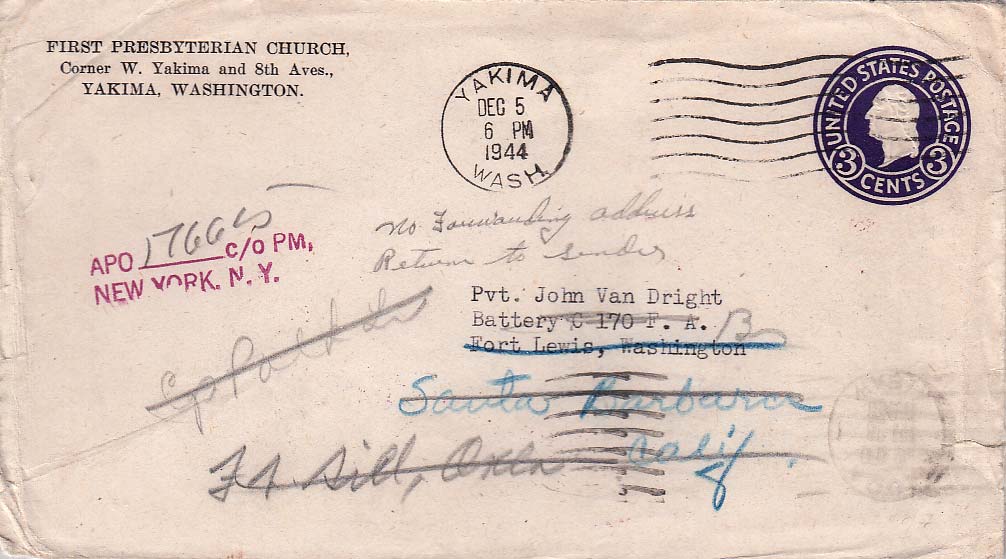 FIRST PRESBYTERIAN CHURCH,
Corner W. Yakima and 8th Aves.,
YAKIMA, WASHINGTON.
YAKIMA
DEC 5
6 PM
1944
WASH.
UNITED STATES POSTAGE
3 CENTS 3
No Forwarding address
Return to Sender
APO 17665 c/o PM,
NEW YORK. N. Y.
Pvt. John Van Dright
Battery C 170 F. A. B
Fort Lewis, Washington
Santa Barbara
Calif
Ft Sill, Okla